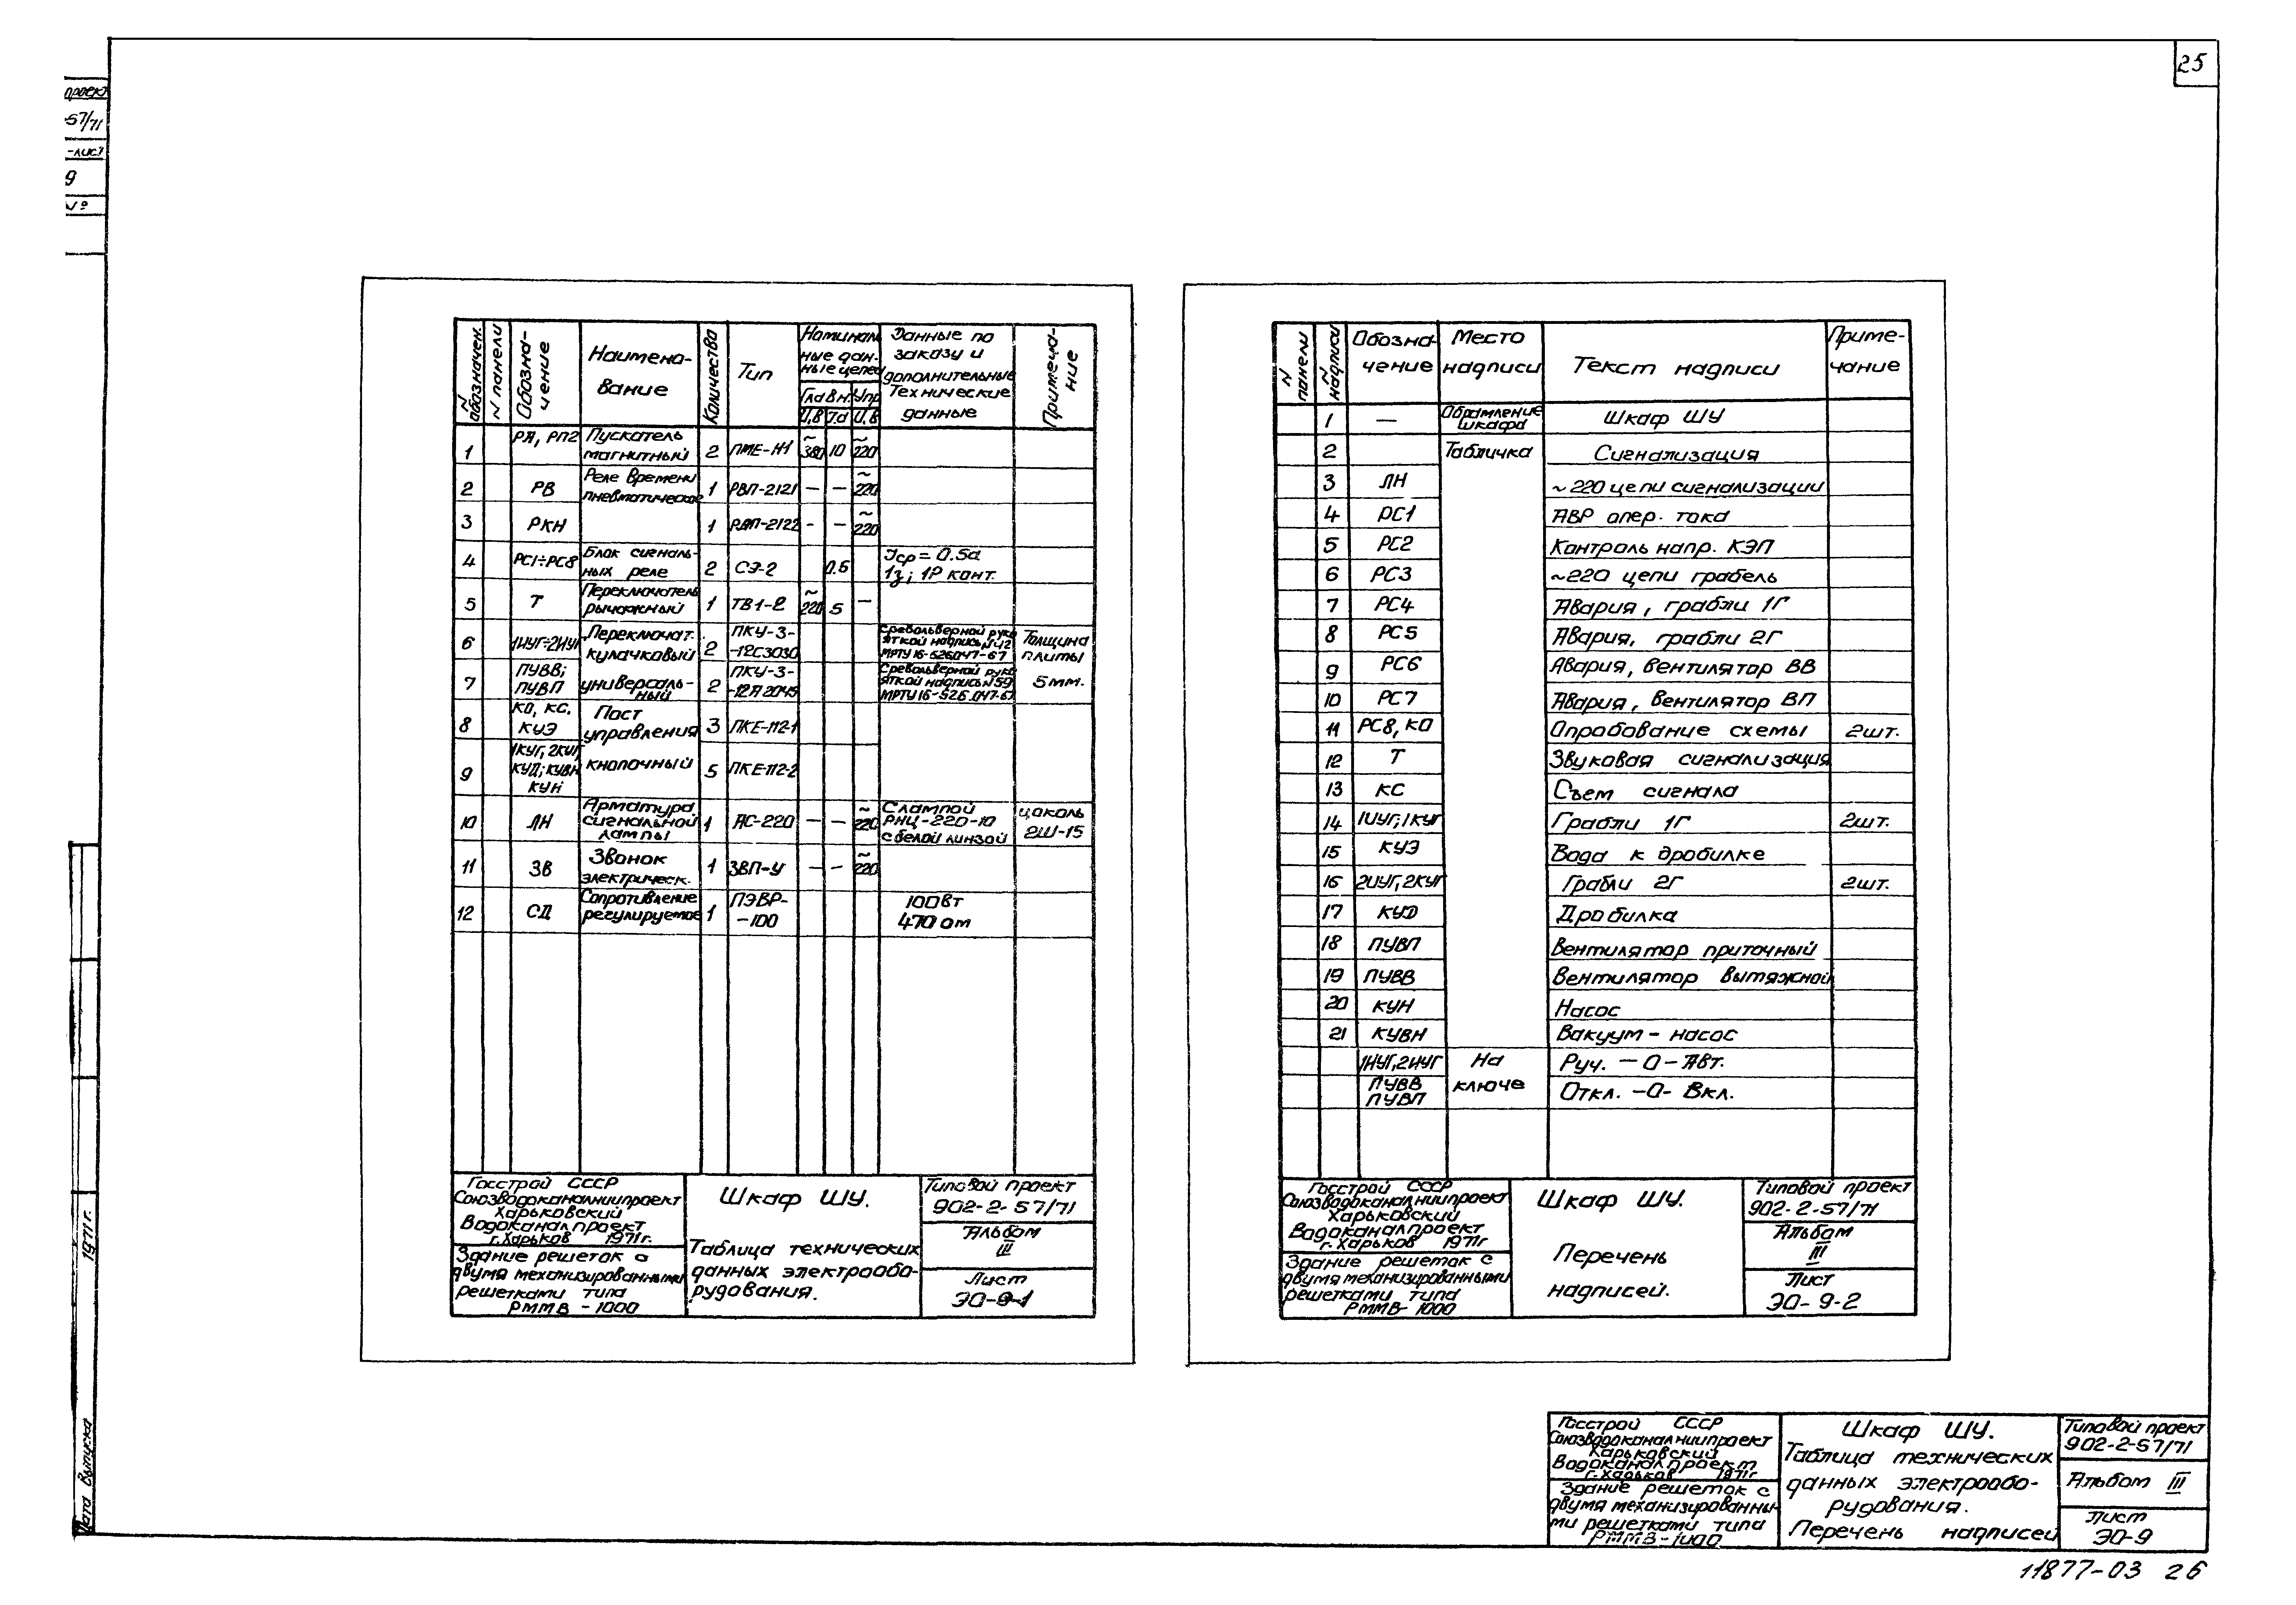 25
проект
57/71
-лист
9
№
Дата выпуска
1971г.
N обозначен.
N панели
Обозна-
чение
Наимено-
вание
Количество
Тип
Номинал
ные дан-
ные цепей
Глав н. Упр
U,В Iа U,В
Данные по
заказу и
дополнительные
Технические
данные
Примеча-
ние
1 РП, РП2 Пускатель магнитный 2 ПМЕ-Н1 ~380 10 ~220
2 РВ Реле времени пневматическое 1 РВП-2121 — — ~220
3 РКН 1 РВП-2122 - — ~220
4 РС1÷РС8 Блок сигналь- ных реле 2 СЭ-2 0.5 Jср = 0.5а 1з; 1Р конт.
5 Т Переключатель рычажный 1 ТВ1-2 ~220 5 —
6 1ИУГ÷2ИУГ Переключат. кулачковый 2 ПКУ-3- -12С3030 С револьверной руко яткой надпись N42 МРТУ16-526047-67 Толщина плиты
7 ПУВВ; ПУВП универсаль- ный 2 ПКУ-3- -12Л2045 С револьверной руко яткой надпись N59 МРТУ16-526.047-67 5мм.
8 КО, КС, КУЭ Пост управления 3 ПКЕ-112-1
9 1КУГ, 2КУГ, КУД; КУВН КУН кнопочный 5 ПКЕ-112-2
10 ЛН Арматура сигнальной лампы 1 АС-220 — — ~220 С лампой РНЦ-220-10 с белой линзой цоколь 2Ш-15
11 ЗВ Звонок электрическ. 1 ЗВП-У — — ~220
12 СД Сопротивление регулируемое 1 ПЭВР- -100 100вт 470 ом
Госстрой СССР
Союзводоканалниипроект
Харьковский
Водоканалпроект
г.Харьков 1971г.
Здание решеток с
двумя механизированными
решетками типа
РММВ-1000
Шкаф ШУ.
Таблица технических
данных электрообо-
рудования.
Типовой проект
902-2-57/71
Альбом
III
Лист
ЭО-9-1
N панели
N надписи
Обозна-
чение
Место
надписи
Текст надписи
Приме-
чание
1 — Обрамление шкафа Шкаф ШУ
2 Табличка Сигнализация
3 ЛН ~220 цепи сигнализации
4 РС1 АВР опер. тока
5 РС2 Контроль напр. КЭП
6 РС3 ~220 цепи грабель
7 РС4 Авария, грабли 1Г
8 РС5 Авария, грабли 2Г
9 РС6 Авария, вентилятор ВВ
10 РС7 Авария, вентилятор ВП
11 РС8, КО Опробование схемы 2шт.
12 Т Звуковая сигнализация
13 КС Съем сигнала
14 1ИУГ, 1КУГ Грабли 1Г 2шт.
15 КУЭ Вода к дробилке
16 2ИУГ, 2КУГ Грабли 2Г 2шт.
17 КУД Дробилка
18 ПУВП Вентилятор приточный
19 ПУВВ Вентилятор вытяжной
20 КУН Насос
21 КУВН Вакуум-насос
1ИУГ, 2ИУГ На Руч. —О—Авт.
ПУВВ ПУВП ключе Откл. -О- Вкл.
Госстрой СССР
Союзводоканалниипроект
Харьковский
Водоканалпроект
г.Харьков 1971г
Здание решеток с
двумя механизированными
решетками типа
РММВ-1000
Шкаф ШУ.
Перечень
надписей.
Типовой проект
902-2-57/71
Альбом
III
Лист
ЭО-9-2
Госстрой СССР
Союзводоканалниипроект
Харьковский
Водоканалпроект
г.Харьков 1971г
Здание решеток с
двумя механизированны-
ми решетками типа
РММВ-1000
Шкаф ШУ.
Таблица технических
данных электрообо-
рудования.
Перечень надписей
Типовой проект
902-2-57/71
Альбом III
Лист
ЭО-9
11877-03 26